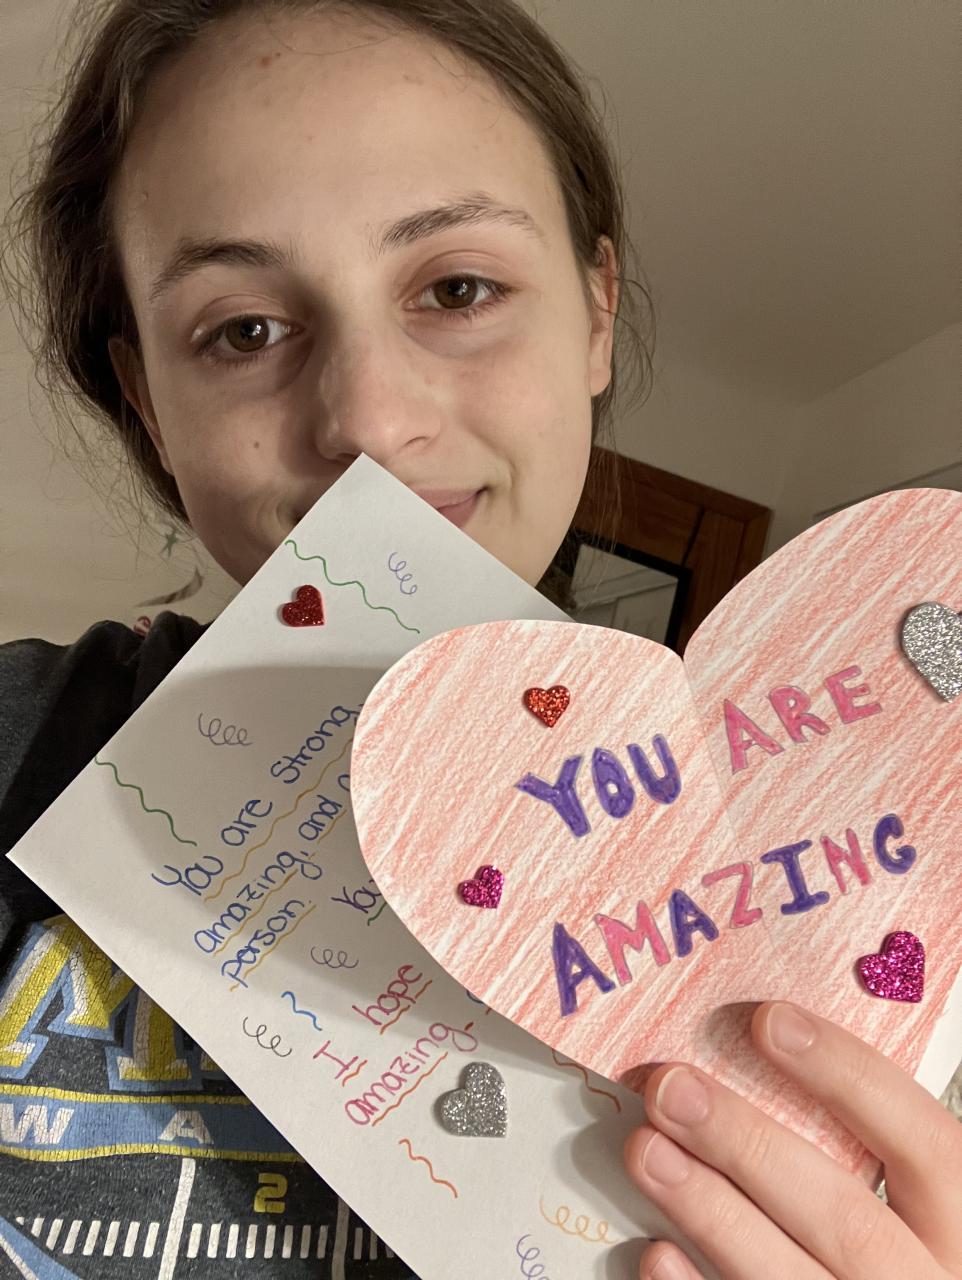 You are Strong,
amazing, and a
person.
You
I hope
amazing.
YOU ARE
AMAZING
M
W A
2